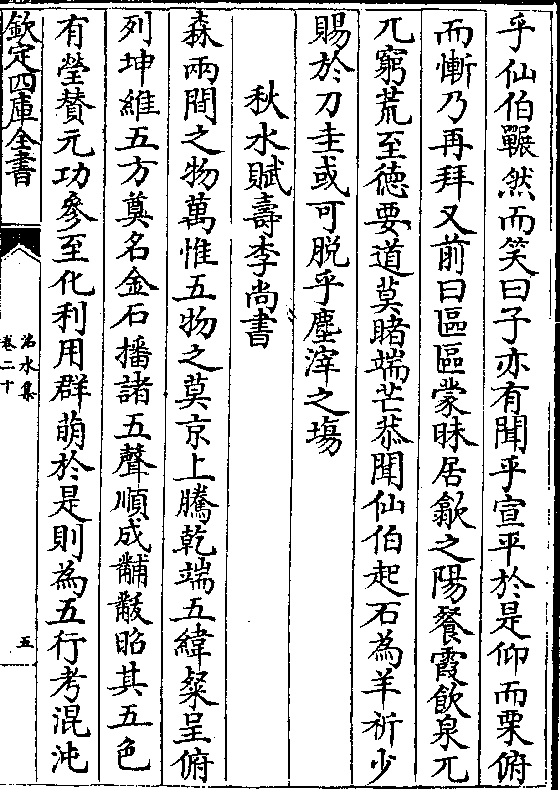 乎仙伯囅然而笑曰子亦有聞乎宣平於是仰而栗俯
而慚乃再拜又前曰區區蒙昧居歙之陽餐霞飲泉兀
兀窮荒至德要道莫睹端芒恭聞仙伯起石為羊祈少
賜於刀圭或可脱乎塵滓之場
秋水賦壽李尚書
森兩間之物萬惟五物之莫京上騰乾端五緯粲呈俯
列坤維五方奠名金石播諸五聲順成黼黻昭其五色
有瑩賛元功參至化利用群萌於是則為五行考混沌
欽定四庫全書
洺水集
卷二十
五